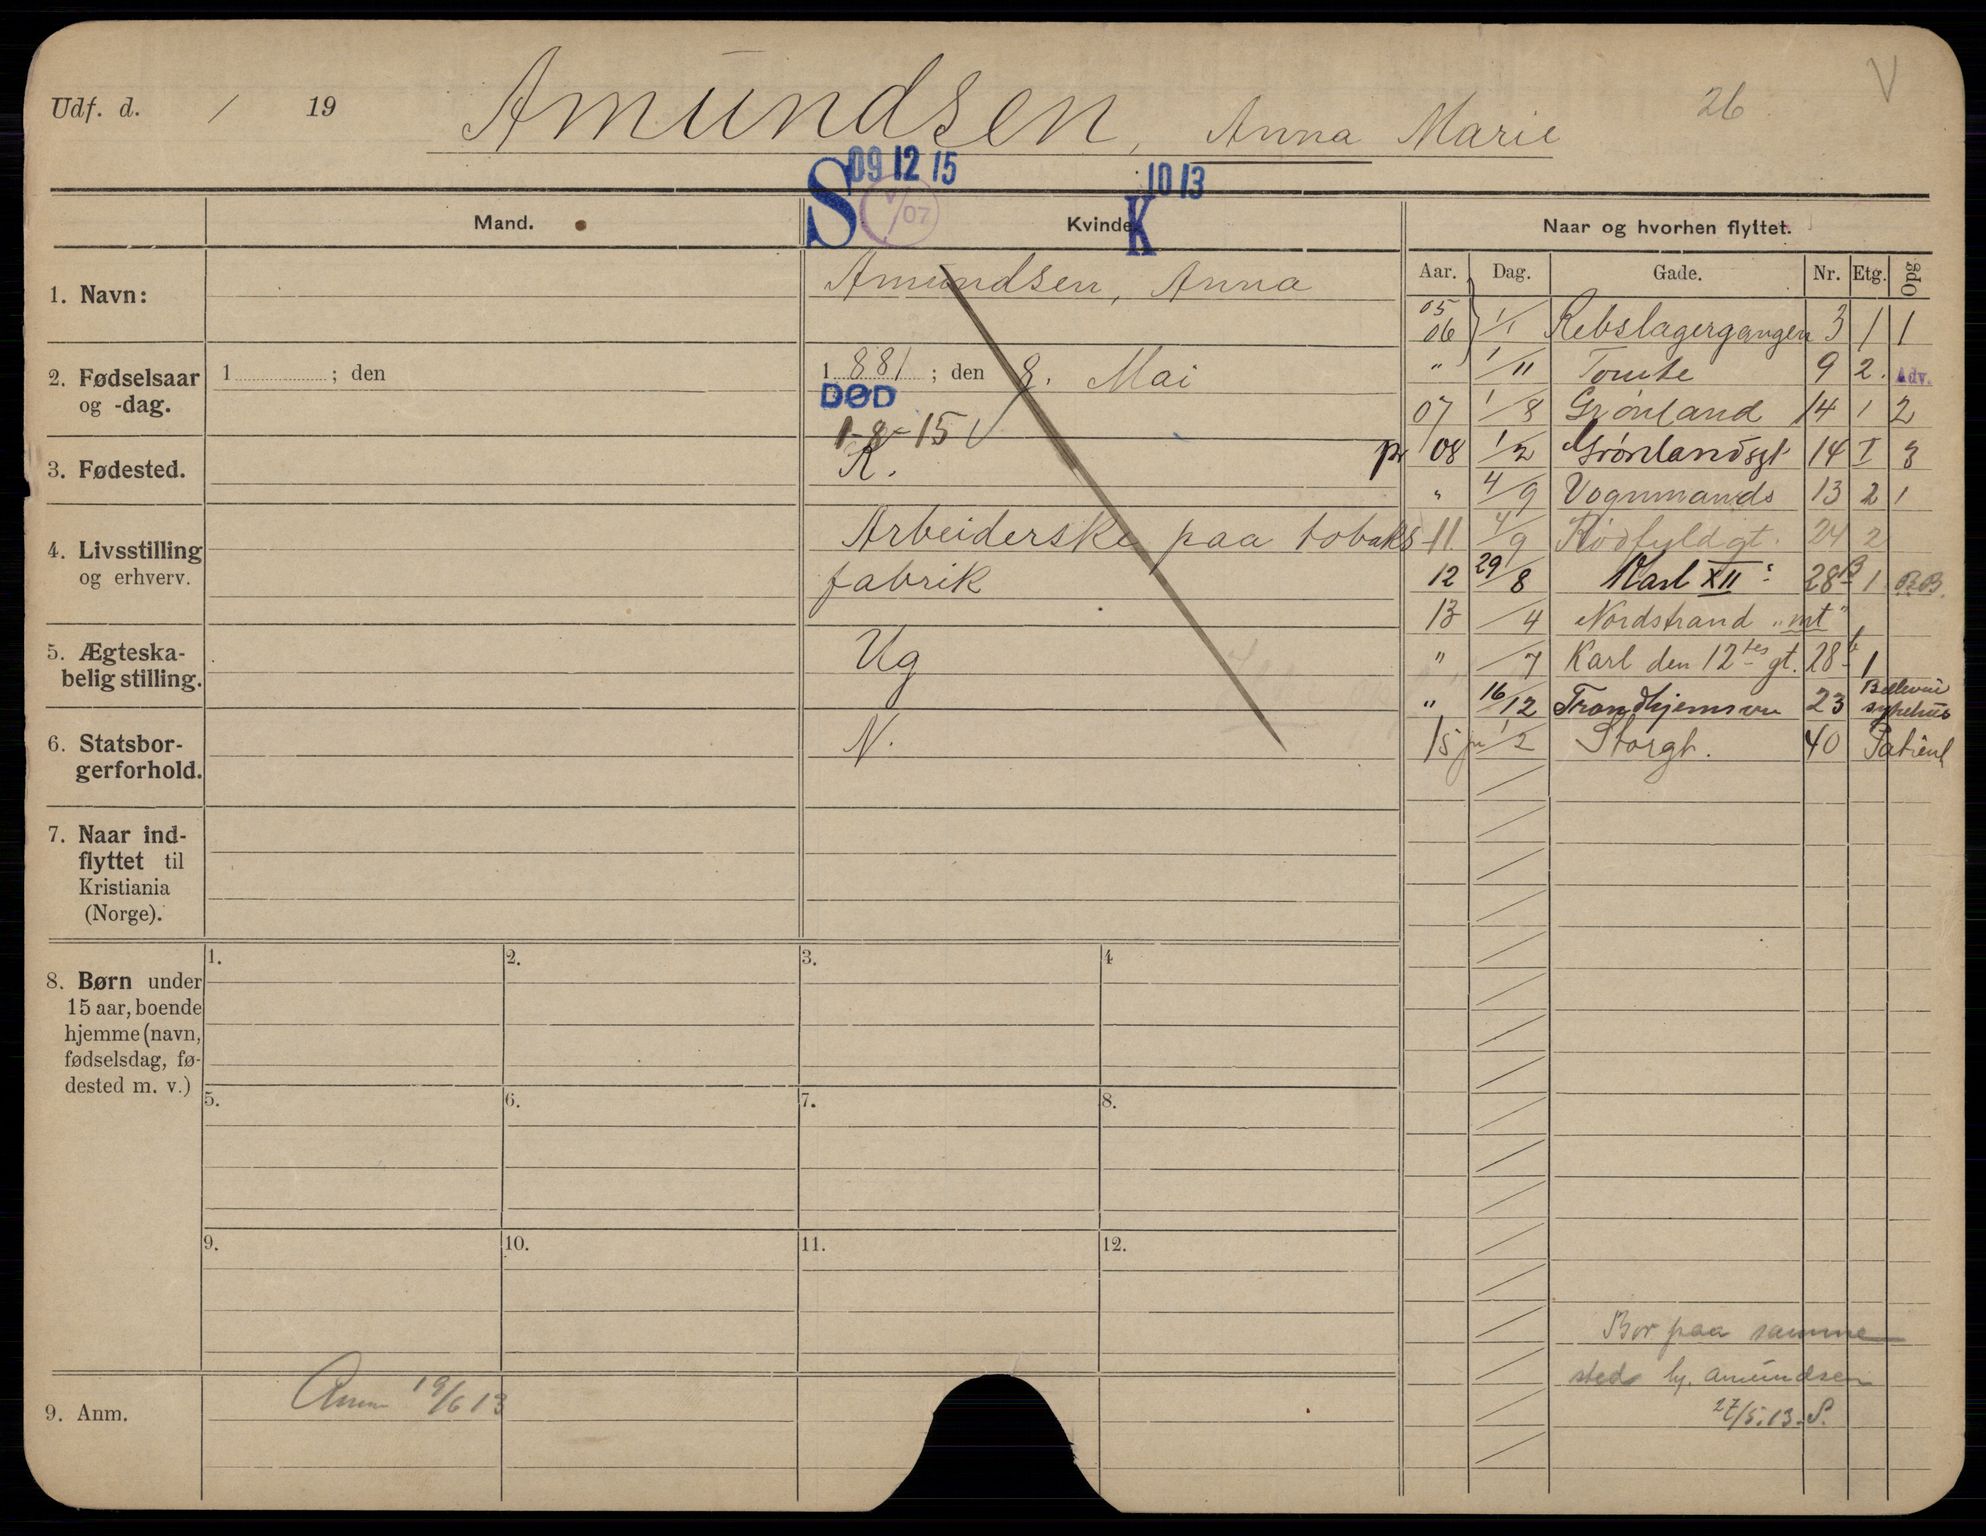 Udf. d. / 19 Amundsen, Anna Marie 26 V
S 09 12 15 V/07 K 10 13
Mand. Kvinde. Naar og hvorhen flyttet.
Aar. Dag. Gade. Nr. Etg. Opg
1. Navn: Amundsen, Anna
2. Fødselsaar og -dag. 1 ; den 1881 ; den 8. Mai
DØD
1-8-15 V
3. Fødested. K.
4. Livsstilling og erhverv. Arbeiderske paa tobaks
fabrik
5. Ægteska-
belig stilling. Ug
6. Statsbor-
gerforhold. N.
7. Naar ind-
flyttet til
Kristiania
(Norge).
05
06 1/1 Rebslagergangen 3 1 1
" 1/11 Tomte 9 2. Adv.
07 1/8 Grønland 14 1 2
pr 08 1/2 Grønlandsgt 14 I 3
" 4/9 Vognmands 13 2 1
11. 4/9 Rødfyldgt. 24 2
12 29/8 Karl XII s 28 B 1 B.B.
13 /4 Nordstrand "mt"
" /7 Karl den 12tes gt. 28 b 1
" 16/12 Trondhjemsvn 23 Bellevue sykehus
15 pr 1/2 Storgt. 40 Patient
8. Børn under
15 aar, boende
hjemme (navn,
fødselsdag, fø-
dested m. v.)
1. 2. 3. 4
5. 6. 7. 8.
9. 10. 11. 12.
Bor paa samme
sted hj. Amundsen
27/5.13. S.
9. Anm. 19/6 13